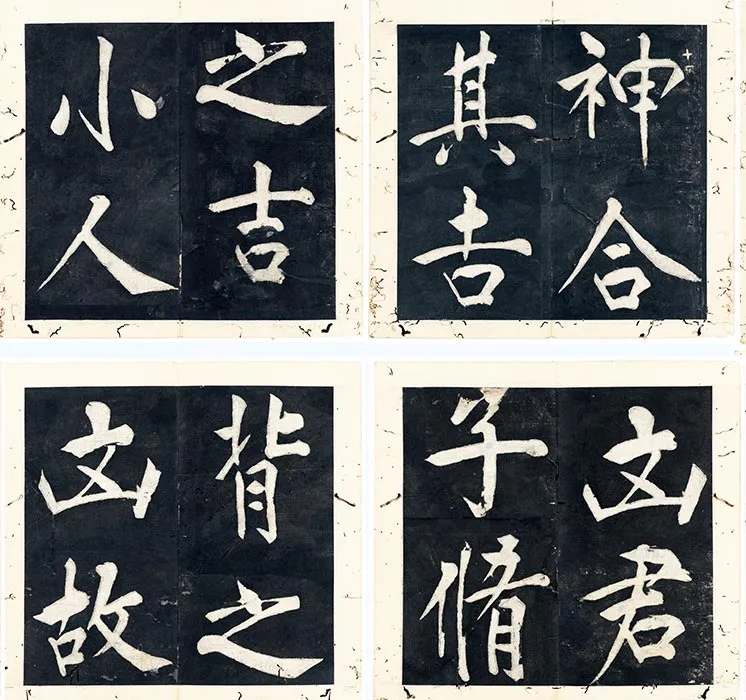 神合
其吉
凶君
子脩
之吉
小人
背之
凶故